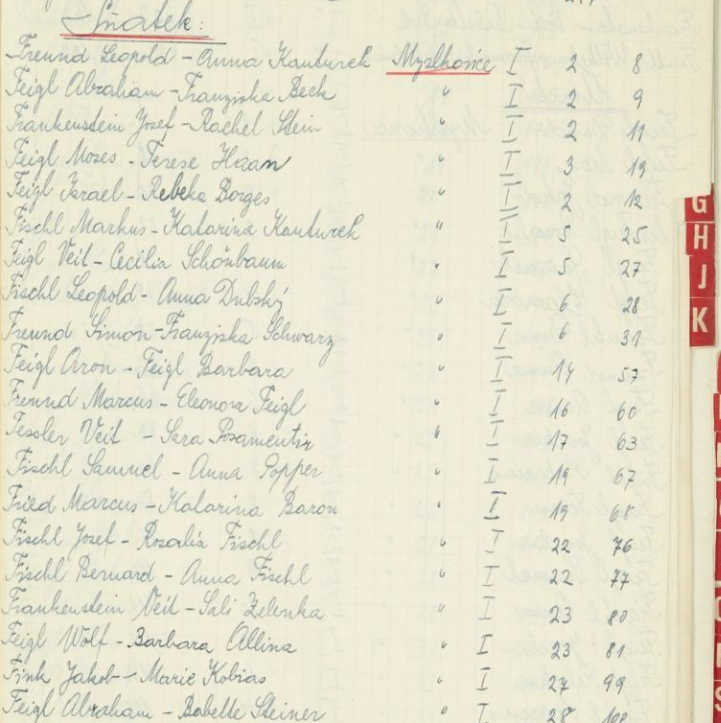 Sňatek:
Freund Leopold - Anna Kanturek Myslkovice I 2 8
Feigl Abraham - Franziska Beck " I 2 9
Frankenstein Josef - Rachel Stein " I 2 11
Feigl Moses - Terese Haan " I 3 19
Feigl Israel - Rebeka Borges " I 2 12
Fischl Markus - Katarina Kanturek " I 5 25
Feigl Veit - Cecilia Schönbaum " I 5 27
Fischl Leopold - Anna Dubský " I 6 28
Freund Simon - Franziska Schwarz " I 6 31
Feigl Aron - Feigl Barbara " I 14 57
Freund Marcus - Eleonora Feigl " I 16 60
Fessler Veit - Sara Posamentir " I 17 63
Fischl Samuel - Anna Popper " I 19 67
Fried Marcus - Katarina Baron " I 19 68
Fischl Josef - Rosalia Fischl " I 22 76
Fischl Bernard - Anna Fischl " I 22 77
Frankenstein Veit - Sali Zelenka " I 23 80
Feigl Wolf - Barbara Allina " I 23 81
Fink Jakob - Marie Kobias " I 27 99
Feigl Abraham - Babette Steiner " I 28 102
G
H
J
K